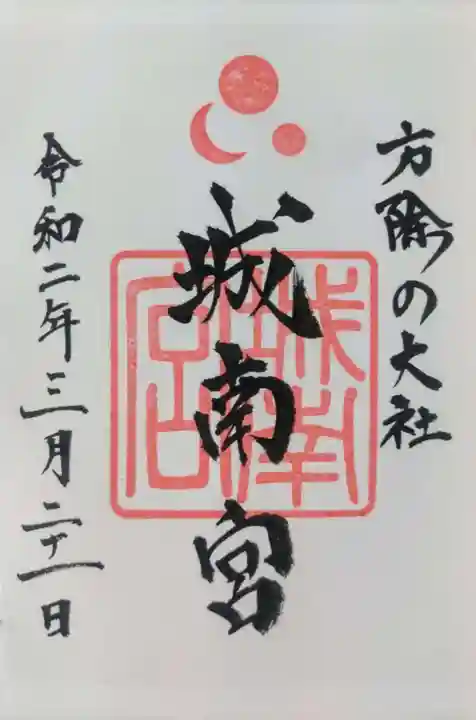 方除の大社
城南宮
令和二年三月二十一日
城南宮